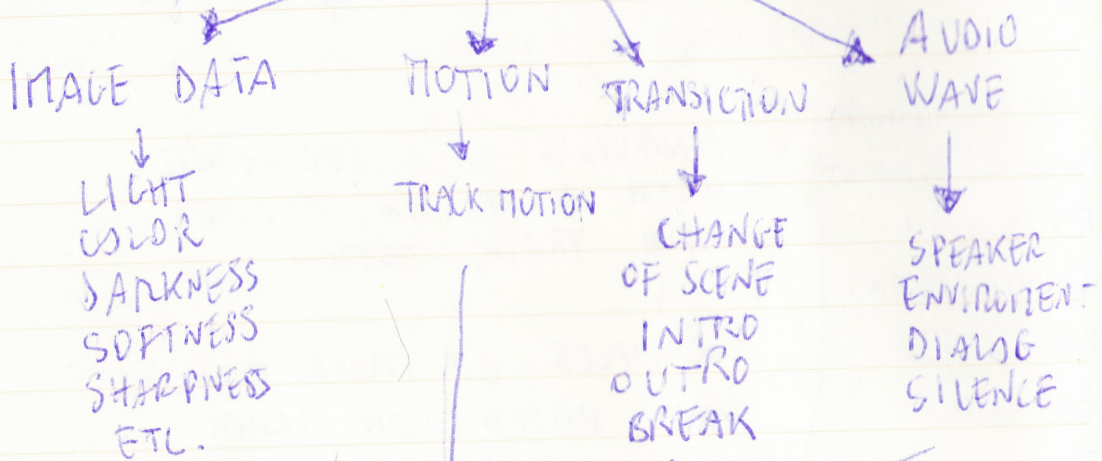 IMAGE DATA
LIGHT
COLOR
DARKNESS
SOFTNESS
SHARPNESS
ETC.
MOTION
TRACK MOTION
TRANSICTION
CHANGE
OF SCENE
INTRO
OUTRO
BREAK
AUDIO
WAVE
SPEAKER
ENVIROMEN-
DIALOG
SILENCE